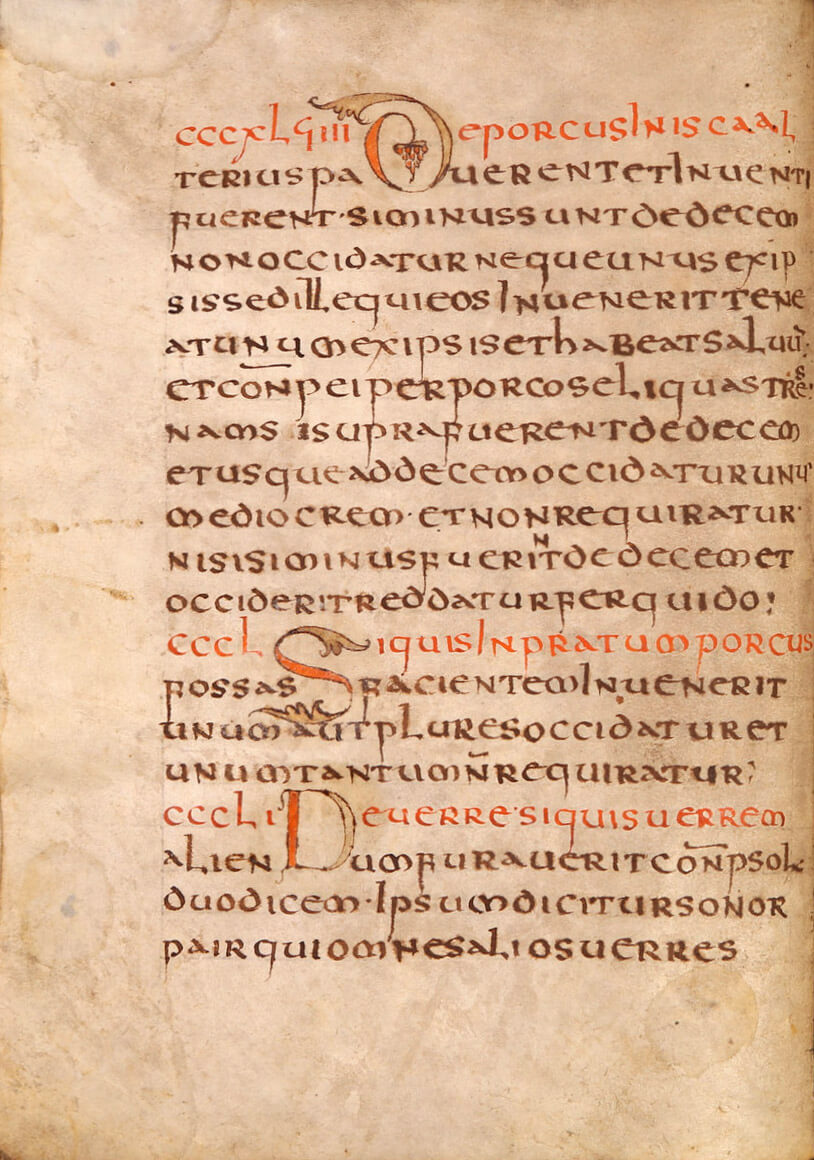 cccxLϛiii De porcus In isca al
terius pauerent et Inuenti
fuerent · si minus sunt de decem
non occidatur neque unus ex ip
sis sed ille qui eos Inuenerit tene
at unum ex ipsis et habeat saluū·
et con̄p ei per porcos eliquas tres
nam si supra fuerent de decem
et usque ad decem occidatur unu
mediocrem · et non requiratur·
nisi si minus fuerint de decem et
occiderit reddatur ferquido;
cccL Si quis In pratum porcus
fossas facientem Inuenerit
unum aut plures occidatur et
unum tantum n̄ requiratur;
cccLi De uerre· si quis uerrem
alienum furauerit con̄p sol
duodicem · Ipsum dicitur sonor
pair qui omnes alios uerres